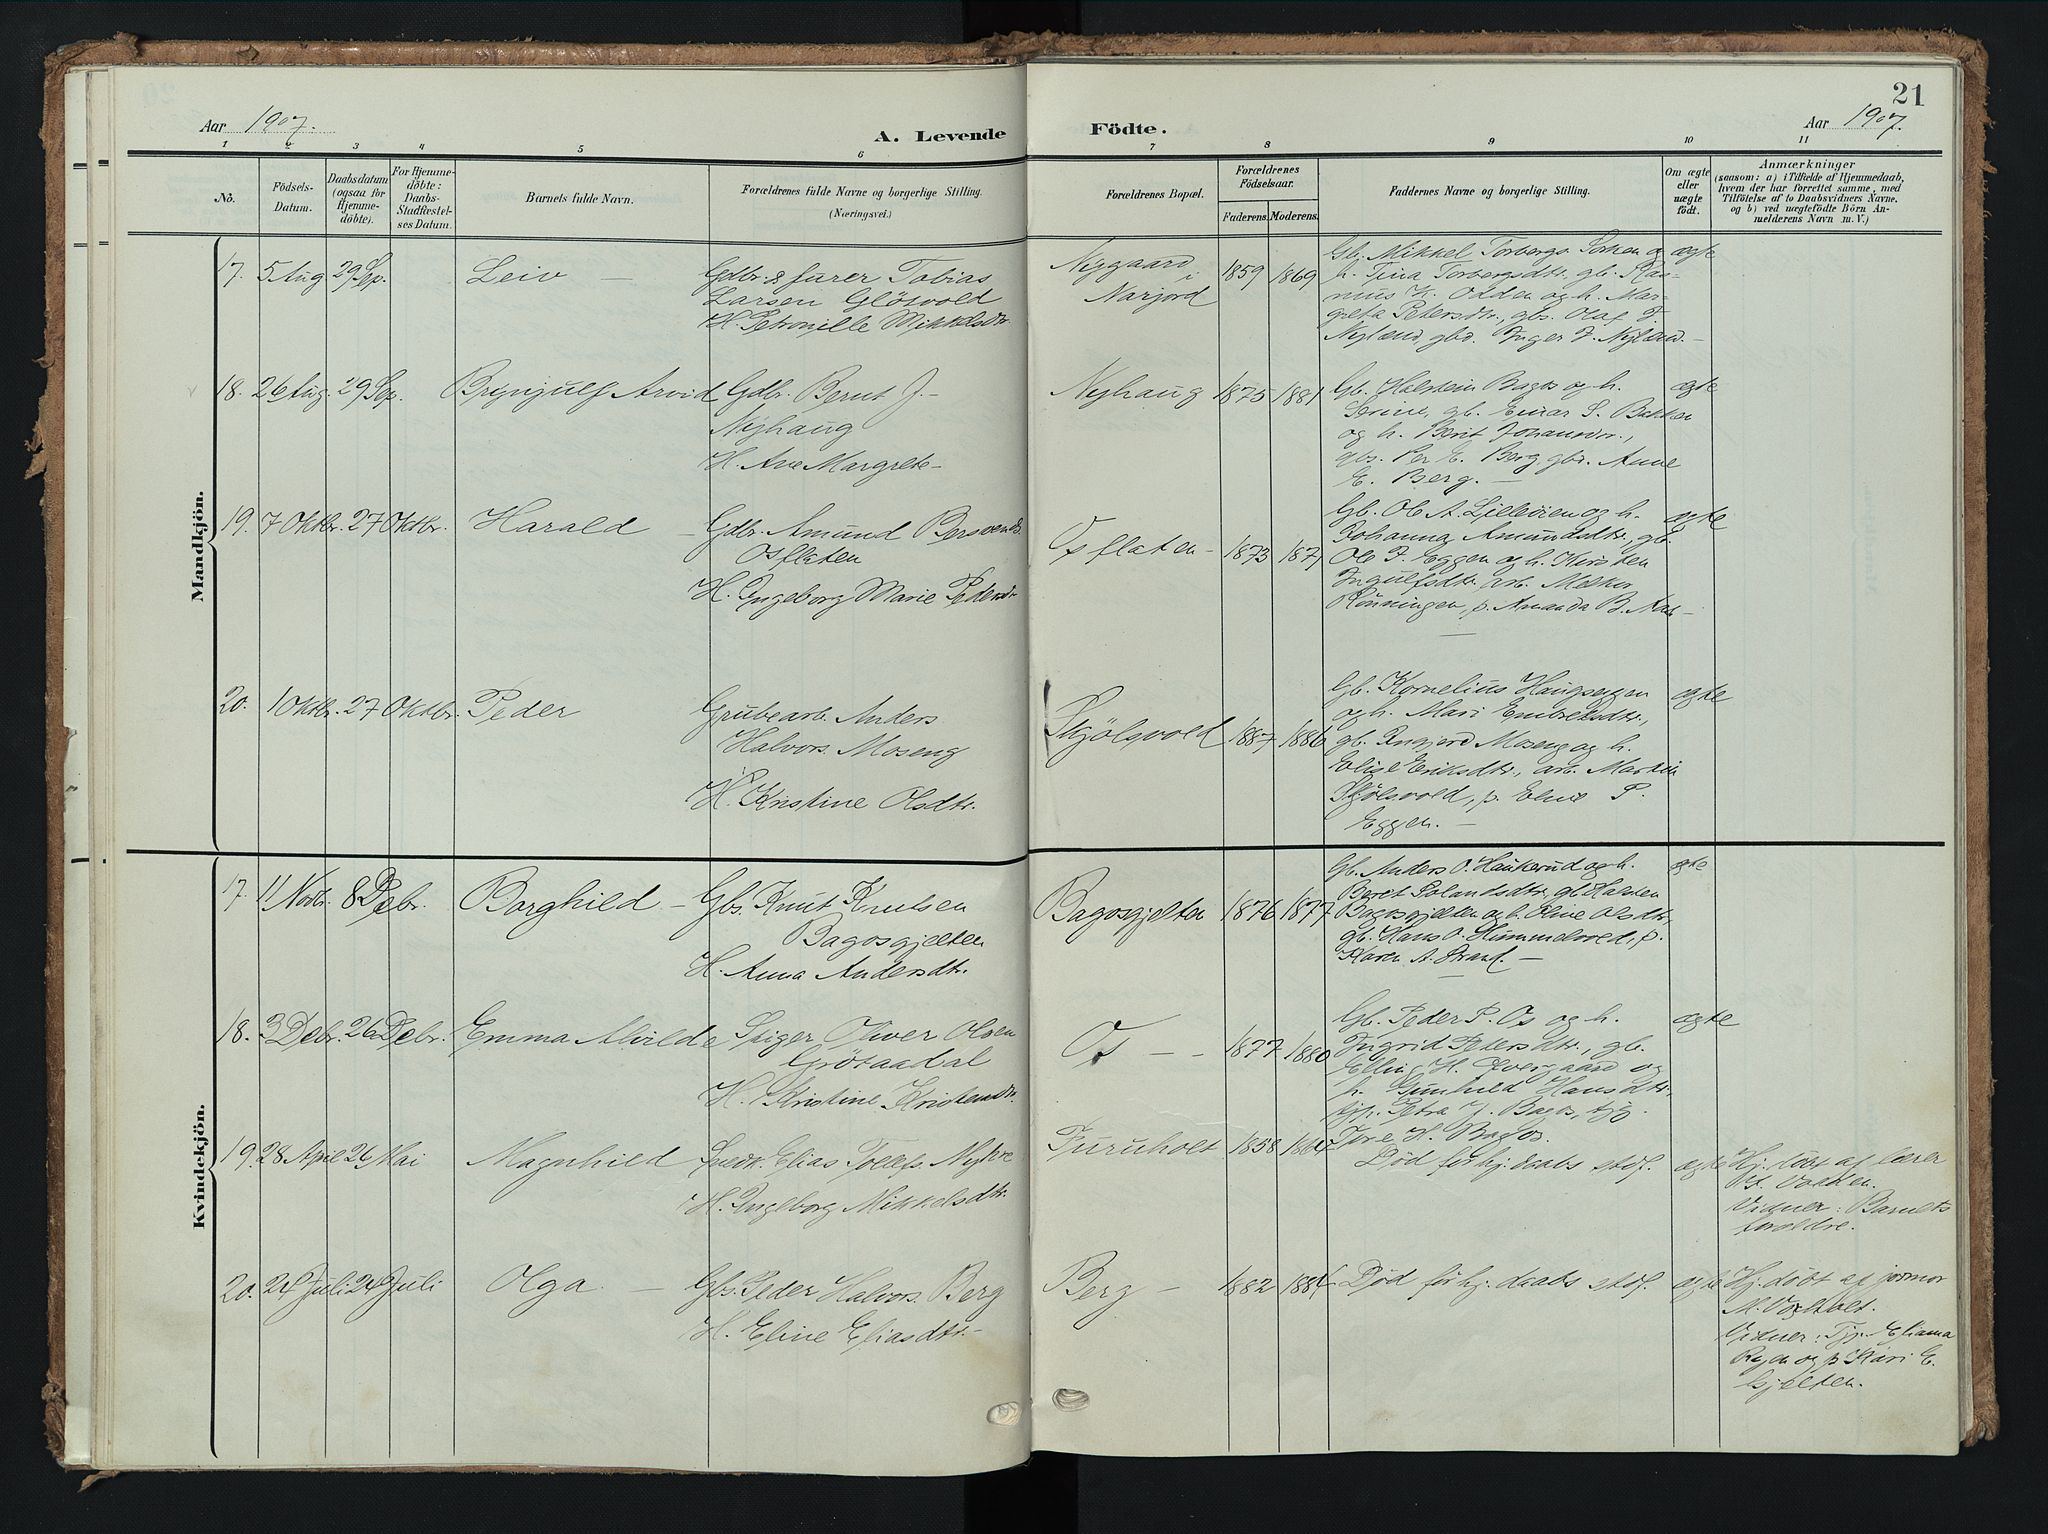 21
Aar 1907.
A. Levende Födte.
Aar 1907.
1 2 3 4 5 6 7 8 9 10 11
No.
Födsels-
Datum.
Daabsdatum
(ogsaa for
Hjemme-
döbte).
For Hjemme-
döbte:
Daabs-
Stadfæstel-
ses Datum.
Barnets fulde Navn.
Forældrenes fulde Navne og borgerlige Stilling.
(Næringsvei.)
Forældrenes Bopæl.
Forældrenes
Födselsaar.
Faderens. Moderens.
Faddernes Navne og borgerlige Stilling.
Om ægte
eller
uægte
födt.
Anmærkninger
(saasom: a) i Tilfælde af Hjemmedaab,
hvem der har forrettet samme, med
Tilföielse af to Daabsvidners Navne,
og b) ved uægtefödte Börn An-
melderens Navn m. V.)
Mandkjön.
17. 5 Aug 29 Sep. Leiv —
Gdbr. & furer Tobias
Larsen Gløsvold
H. Petronille Mikkelsdtr.
Nygaard i
Narjord
1859 1869
Gb. Mikkel Torbergs. og
h. Tina Torbergsdtr. gb. Ras-
mus K. Odden og h. Mar-
greta Petersdtr., gbs. Olaf T.
Nyland, gbd. Inger J. Nyland. —
ægte
18. 26 Aug. 29 Sep. Brynjulf Arvid
Gdbr. Bernt J. —
Nyhaug
H. Ane Margrete —
Nyhaug 1875 1881
Gb. Halstein Bagos og h.
gb. Einar S. Bakken
og h. Berit Johansdtr.,
gbs. Per E. Berg, gbd. Anne
E. Berg. —
ægte
19. 7 Oktbr. 27 Oktbr. Harald —
Gdbr. Amund Bersvends.
Osflaten
H. Ingeborg Marie Pedersdtr
Osflaten — 1873 1871
Gb. Ole A. Lilleøien og h.
Johanna Amundsdtr., gb.
Ole J. Eggen og h. Kirsten
Ingulfsdtr. arb.
Rønningen, p. Amanda B. —
ægte
20. 1 Oktbr. 27 Oktbr. Peder
Grubearb. Anders
Halvors. Moseng
H. Kristine Olsdtr.
Skjølsvold 1887 1886
Gb. Kornelius Haugsergen
og h. Mari Embretsdtr.,
gb. Moseng og h.
Elise Eriksdtr., arb. Martin
Skjølsvold, p. Eline P.
Eggen. —
ægte
Kvindekjön.
17. 11 Novbr. 8 Debr. Borghild —
Gbs. Knut Knutsen
Bagosgjelten
H. Anna Andersdtr.
Bagosgjelten 1876 1877
Gb. Anders O. Haukerud og h.
Beret gb. Halsten
Bagosgjelten og h. Oline Olsdtr.
gb. Hans O. Hummelvold, p.
Karen A. Strand. —
ægte
18. 3 Debr. 26 Debr. Emma Alvilde
Oliver Olsen
Grøtaadal
H. Kristine Kristensdtr.
Os — — 1877 1880
Gb. Peder P. Os og h.
Ingrid Petersdtr., gb.
Elling H. og
h. Gunhild Hansdtr.,
tjp. Petra J. Bagos, tjg.
Iver H. Bagos.
ægte
19. 28 April 26 Mai Magnhild
Snedk. Elias Tollefs. Myhre
H. Ingeborg Mikkelsdtr.
Furuholt 1858 1864
Død før hj. daabs stdf. ægte
Hj. døbt af lærer
Vidner: Barnets
foreldre.
20. 24 Juli 24 Juli Olga —
Gbs. Peder Halvors. Berg
H. Eline Eliasdtr. —
Berg — 1882 1884
Død før hj. daabs stdf. ægte
Hj. døbt af jormor
M.
Vidner: Tjp. Eliama
Ryen og p. Kari E.
Gjelten.